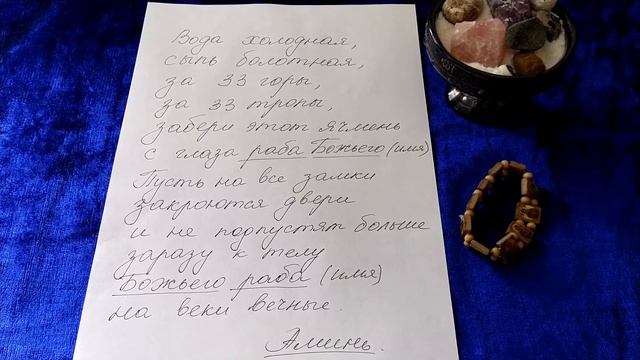 Вода холодная,
сыпь болотная,
за 33 горы,
за 33 тропы,
забери этот ячмень
с глаза раба Божьего (имя)
Пусть на все замки
закроются двери
и не подпустят больше
заразу к телу
Божьего раба (имя)
на веки вечные.
Аминь.